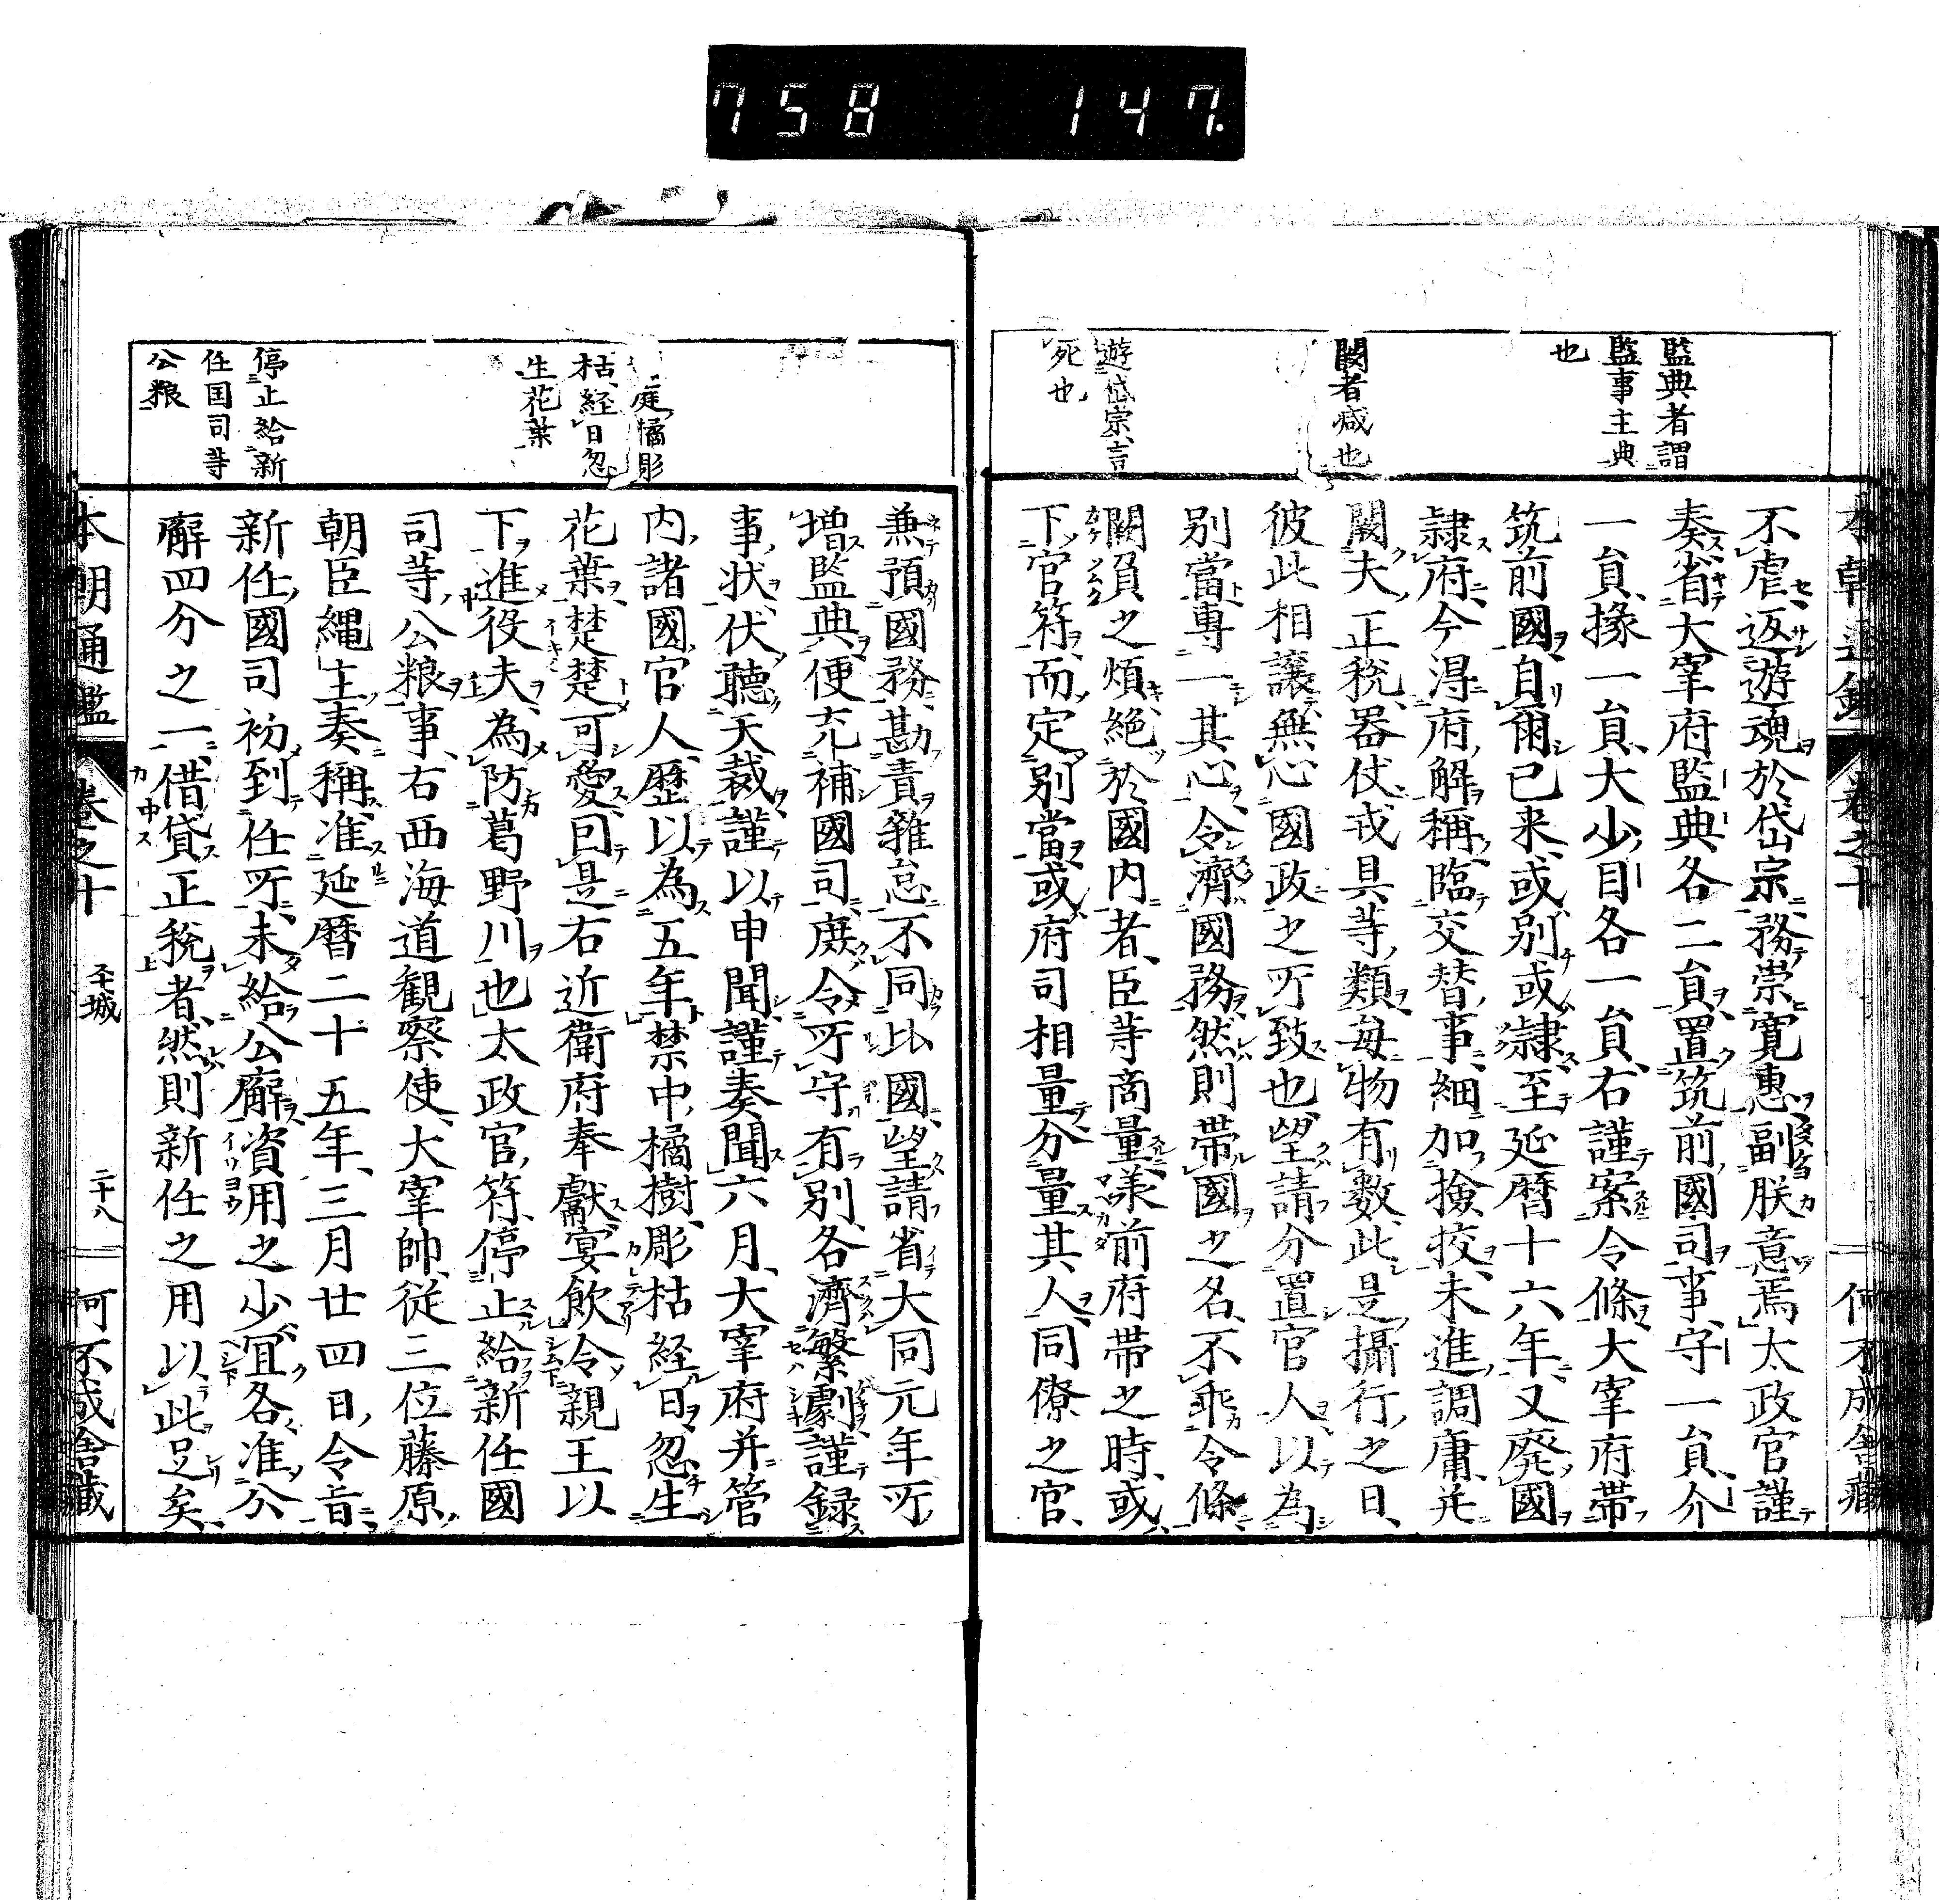 758 147.
監典者謂
監事主典
也
闕者減也
遊岱宗言
死也
不虐返遊魂於岱宗務崇寛惠副朕意焉太政官謹
奏省大宰府監典各二員置筑前國司事守一員介
一員掾一員大少目各一員右謹案令條大宰府帯
筑前國自爾已来或別或隷至延暦十六年又廃國
隷府今得府解稱臨交替事細加撿挍未進調庸并
闕夫正税器仗戎具等類毎物有數此是攝行之日
彼此相讓無心國政之所致也望請分置官人以為
別當專一其心令濟國務然則帯國之名不乖令條
闕負之煩絶於國内者臣等商量前府帯之時或
下官符而定別當或府司相量分量其人同僚之官
本朝通鑑 卷之十 何不成舎藏
庭橘彫
枯経日忽
生花葉
停止給新
任国司等
公粮
兼預國務勘責雜怠不同比國望請省大同元年所
増監典便充補國司庶令所守有別各濟繁劇謹録
事状伏聽天裁謹以申聞謹奏聞六月大宰府并管
内諸國官人歴以為五年禁中橘樹彫枯経日忽生
花葉楚楚可愛回是右近衛府奉獻宴飲令親王以
下進役夫為防葛野川也太政官符停止給新任國
司等公粮事右西海道觀察使大宰帥従三位藤原
朝臣縄主奏稱准延暦二十五年三月廿四日令旨
新任國司初到任所未給公廨資用之少宜各准分
廨四分之一借貸正税者然則新任之用以此足矣
本朝通鑑 卷之十 平城 二十八 何不成舎藏